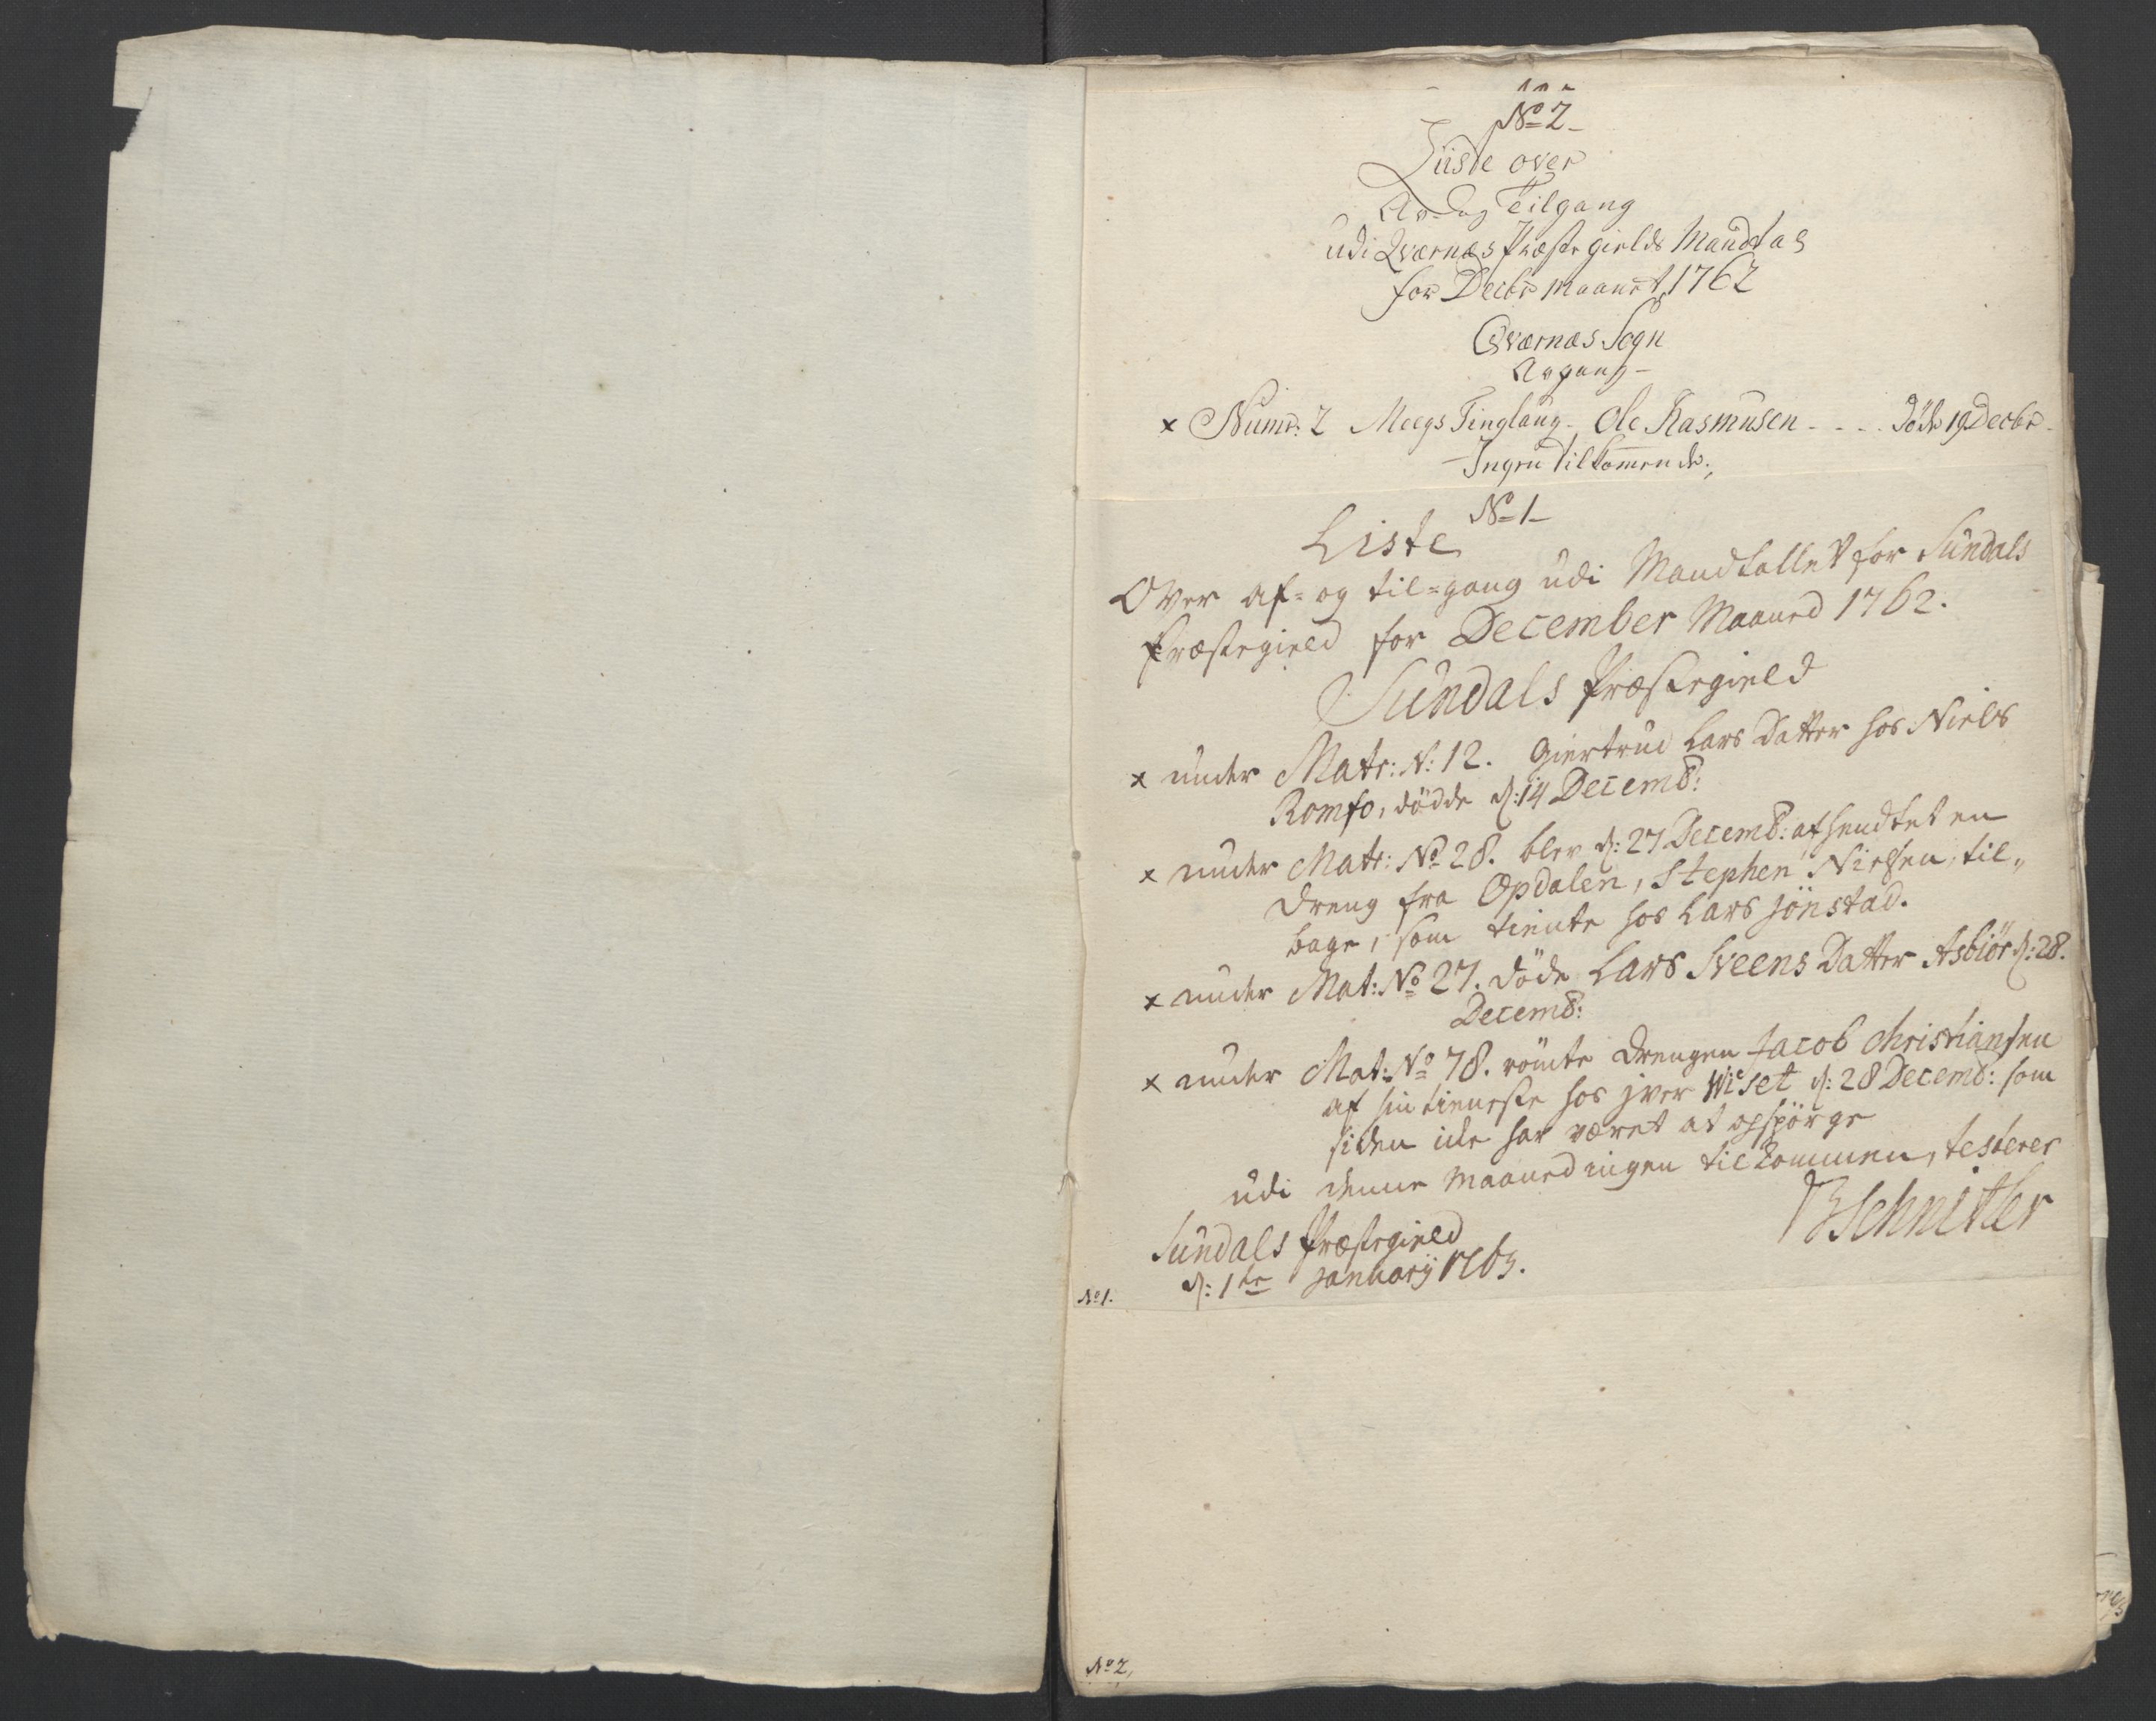 No 2
Liste over
Av- og Tilgang
udi Qværnæs Præstegields Mandtal
for Decbr Maanet 1762
Qværnæs Sogn
Avgang
x Numr: 2 Meegs Tinglaug - Ole Rasmusen - - - - döde 19 Decbr -
Ingen tilkommende.,
No 1
Liste
Over af- og til-gang udi Mandtallet for Sundals
Præstegield for December Maaned 1762.
Sundals Præstegield
x under Matr: N: 12. Giertrud Lars Datter hos Niels
Romfo, dödde d: 14 Decemb:
x under Matr: No 28. blev d: 27 Decemb: afsendtet en
Dreng fra Opdalen, Stephen Nielsen, til„
bage, som tiente hos Lars Jönstad.
x under Mat: No 27. döde Lars Sveens Datter Asbiör d: 28.
Decemb:
x under Mat: No 78. römte Drengen Jacob Christiansen
af sin tieneste hos Iver Wiset d: 28 Decemb: som
siden icke har været at opspörge
udi denne Maaned ingen tilkommen, testerer
BSchnitler
Sundals Præstegield
d: 1te Januarij 1763.
No 1.
No 2,